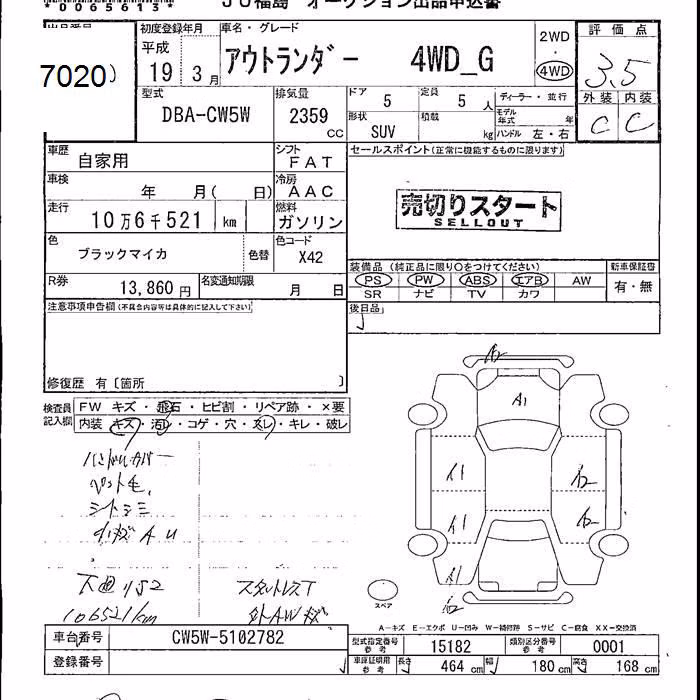 *0065613*
JU福島 オークション出品申込書
出品番号
7020
初度登録年月
平成
19年 3月
車名・グレード
アウトランダー 4WD_G
2WD
4WD
評価点
3.5
外装 内装
C C
型式
DBA-CW5W
排気量
2359 CC
ドア 5
定員 5 人
形状 SUV
積載 kg
ディーラー・並行
モデル年式 年
ハンドル 左・右
車歴 自家用
シフト FAT
セールスポイント(正常に機能するものに限ります)
車検 年 月( 日)
冷房 AAC
走行 10万6千521 km
燃料 ガソリン
売切りスタート
SELLOUT
色 ブラックマイカ
色替
色コード X42
装備品 (純正品に限り〇をつけてください)
新車保証書
PS PW ABS エアB AW
有・無
SR ナビ TV カワ
R券 13,860 円
名変通知期限 月 日
後日品
注意事項申告欄(不具合内容等は具体的に記入して下さい)
修復歴 有〔箇所 〕
検査員記入欄
FW キズ・飛石・ヒビ割・リペア跡・×要
内装 キズ・汚レ・コゲ・穴・スレ・キレ・破レ
ハンドルカバー
ペット毛
シートシミ
小キズAU
下廻りS2
106521km
スタットレスT
外AWキズ
A2
A1
A1
A2
A1
A2
A1
A2
スペア
A-キズ E-エクボ U-凹み W-補修跡 S-サビ C-腐食 XX-交換済
車台番号 CW5W-5102782
型式指定番号 参考 15182
類別区分番号 参考 0001
登録番号
車庫証明用 参考 長さ 464 cm 幅 180 cm 高さ 168 cm